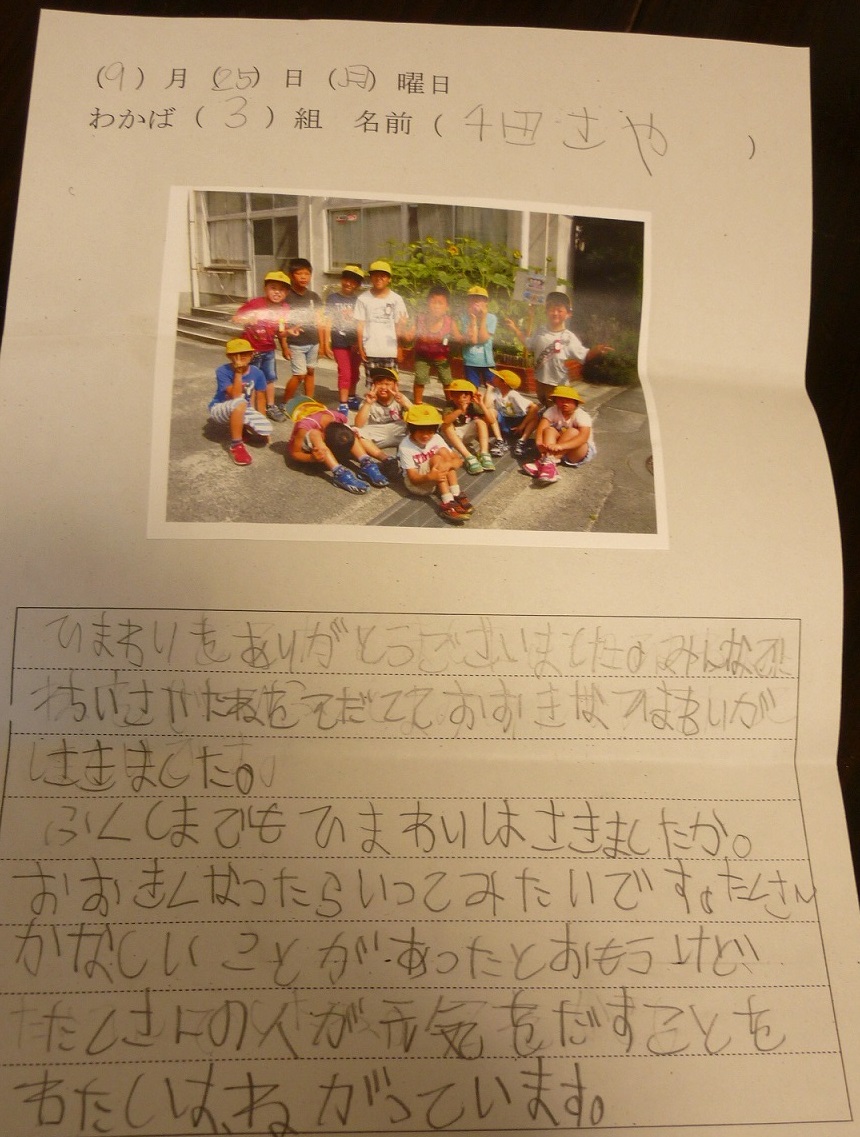 (9)月(25)日(月)曜日
わかば(3)組 名前( 千田さや )
ひまわりをありがとうございました。みんなで
ちいさなたねをそだてておおきなひまわりが
さきました。
ふくしまでもひまわりはさきましたか。
おおきくなったらいってみたいです。たくさん
かなしいことがあったとおもうけど
たくさんの人が元気をだすことを
わたしは、ねがっています。